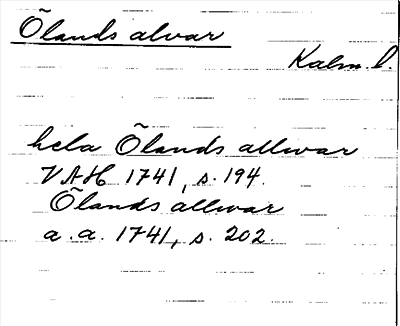 Ölands alvar
Kalm. l.
hela Ölands allwar
VAH 1741, s. 194.
Ölands allwar
a.a. 1741, s. 202.